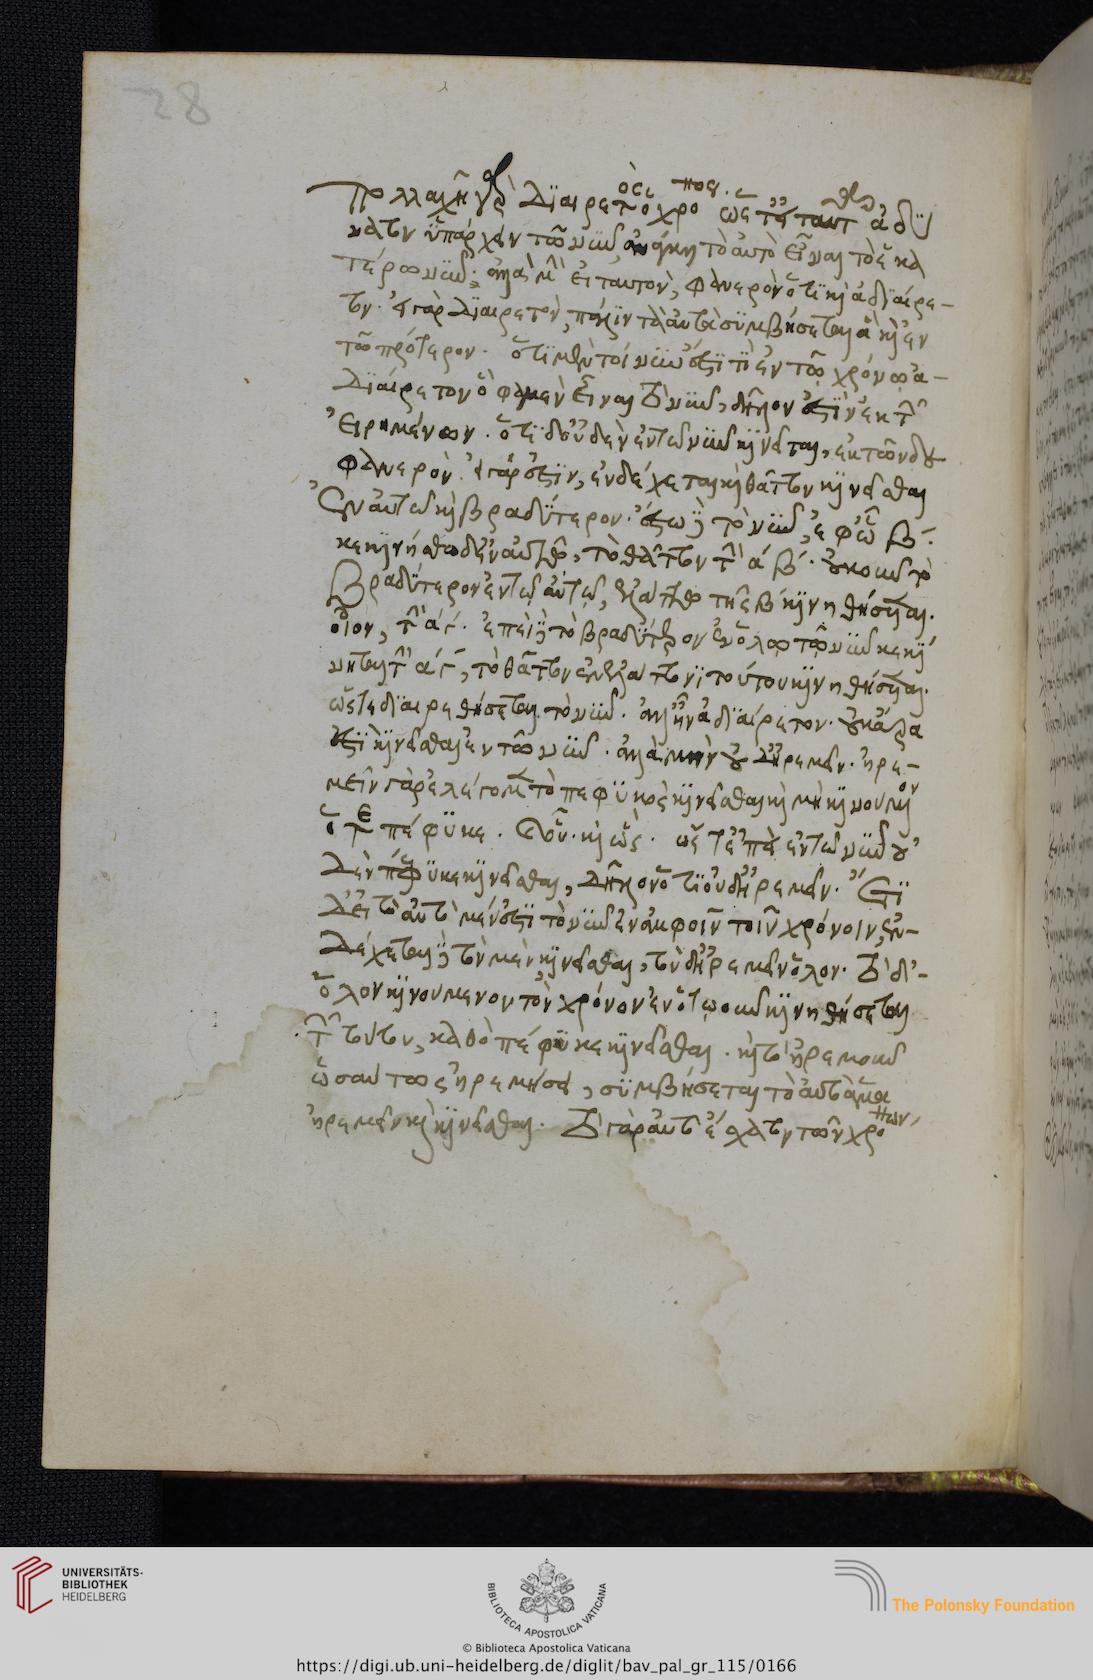 28
πολλαχῆ γὰρ διαιρετὸς ὁ χρόνος. ὥστ' εἰ ταῦτα ἀδύ
νατον ὑπάρχειν τῶ νῦν, ἀνάγκη τὸ αὐτὸ εἶναι τὸ ἐν ἑκα
τέρω νῦν· ἀλλὰ μὴν εἰ ταυτὸν, φανερὸν ὅτι καὶ ἀδιαίρε-
τον. εἰ γὰρ διαιρετὸν, πάλιν ταῦτα συμβήσεται ἃ καὶ ἐν
τῶ πρότερον. ὅτι μὲν τοίνυν ἔστι τι ἐν τῶ χρόνω ἀ-
διαίρετον ὅ φαμεν εἶναι τὸ νῦν, δῆλόν ἐστιν ἐκ τῶν
εἰρημένων. ὅτι δ' οὐδὲν ἐν τῶ νῦν κινεῖται, ἐκ τῶνδε
φανερόν. εἰ γάρ ἐστιν, ἐνδέχεται καὶ θᾶττον κινεῖσθαι
ἐν αὐτῶ καὶ βραδύτερον. ἔστω δὴ τὸ νῦν, ἐφ' ὧ β.
κεκινήσθω δ' ἐν αὐτῶ, τὸ θᾶττον τὴν α β. οὐκοῦν τὸ
βραδύτερον ἐν τῶ αὐτῶ, ἐλάττω τῆς α β κινηθήσεται.
οἷον, τὴν α γ. ἐπεὶ δὲ τὸ βραδύτερον ἐν ὅλω τῶ νῦν κεκί
νηται τὴν α γ, τὸ θᾶττον ἐν ἐλάττονι τούτου κινηθήσεται.
ὥστε διαιρεθήσεται τὸ νῦν. ἀλλ' ἦν ἀδιαίρετον. οὐκ ἄρα
ἔστι κινεῖσθαι ἐν τῶ νῦν. ἀλλὰ μὴν οὐδ' ἠρεμεῖν. ἠρε-
μεῖν γὰρ ἐλέγομεν τὸ πεφυκὸς κινεῖσθαι καὶ μὴ κινούμενον
ὅτε πέφυκε. καὶ οὗ. καὶ ὡς. ὥστ' ἐπεὶ ἐν τῶ νῦν οὐ
δὲν πέφυκε κινεῖσθαι, δῆλον ὅτι οὐδ' ἠρεμεῖν. ἔτι
δ' εἰ τὸ αὐτὸ μέν ἐστι τὸ νῦν ἐν ἀμφοῖν τοῖν χρόνοιν, ἐν-
δέχεται δὲ τὸν μὲν κινεῖσθαι, τὸν δ' ἠρεμεῖν ὅλον. τὸ δ'-
ὅλον κινούμενον τὸν χρόνον ἐν ὁτωοῦν κινηθήσεται
τῶν τούτου, καθὸ πέφυκε κινεῖσθαι. καὶ τὸ ἠρεμοῦν
ὡσαύτως ἠρεμήσει, συμβήσεται τὸ αὐτὸ ἅμα
ἠρεμεῖν καὶ κινεῖσθαι. τὸ γὰρ αὐτὸ ἔσχατον τῶν χρόνων
UNIVERSITÄTS-
BIBLIOTHEK
HEIDELBERG
BIBLIOTECA APOSTOLICA VATICANA
The Polonsky Foundation
© Biblioteca Apostolica Vaticana
https://digi.ub.uni-heidelberg.de/diglit/bav_pal_gr_115/0166